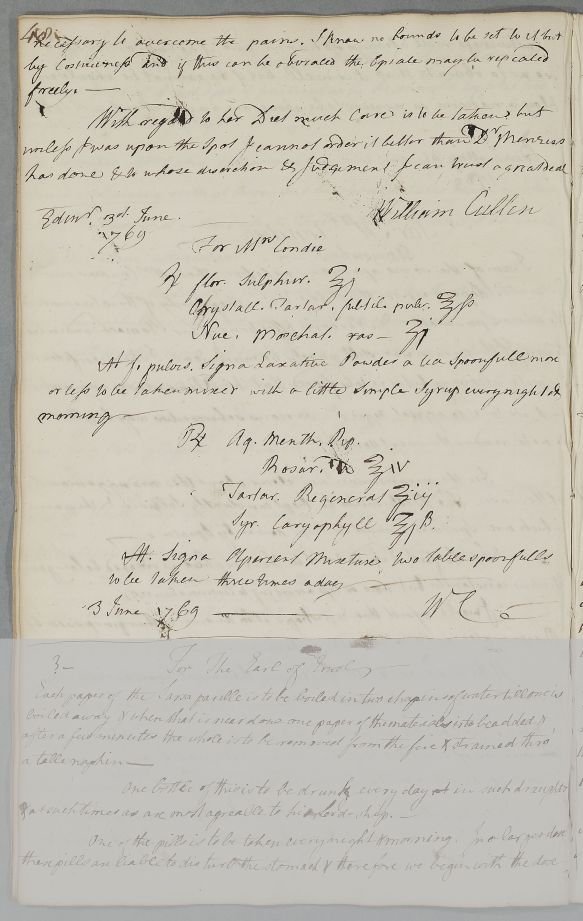 48
necessary to overcome the pains. I know no bounds to be set to it but
by Costiveness and if this can be obviated the Opiate may be repeated
freely. —
With regard to her Diet much Care is to be taken but
unless I was upon the Spot I cannot order it better than Dr Menzies
has done & to whose discretion & Judgement I can trust a great deal
William Cullen
Edinr. 3d June.
1769
For Mrs Condie
℞ flor. Sulphur. ʒj
Chrystall. Tartar. subtil. pulv. ʒſs
Nuc. Moschat. ras — ʒj
M. f. pulvis. Signa Laxative Powder a tea Spoonfull more
or less to be taken mixed with a little Simple Syrup every night &
morning —
℞ Aq. Menth. Pip.
Rosar. ℥iv
Tartar. Regenerat ʒiij
Syr. Caryophyll ℥jß.
M. Signa Aperient Mixture two tablespoonfulls
to be taken three times a day
3 June 1769 — WC
3 — For The Earl of Errol
Each paper of the Sarsaparille is to be boiled in two chopins of water till one is
boiled away & when that is near done one paper of the materials is to be added &
after a few minutes the whole is to be removed from the fire & strained thro
a table napkin —
One bottle of this is to be drunk every day in such draughts
& at such times as are most agreable to his Lordship. —
One of the pills is to be taken every night & morning. In larger dose
these pills are liable to disturb the stomach & therefore we begin with the dose